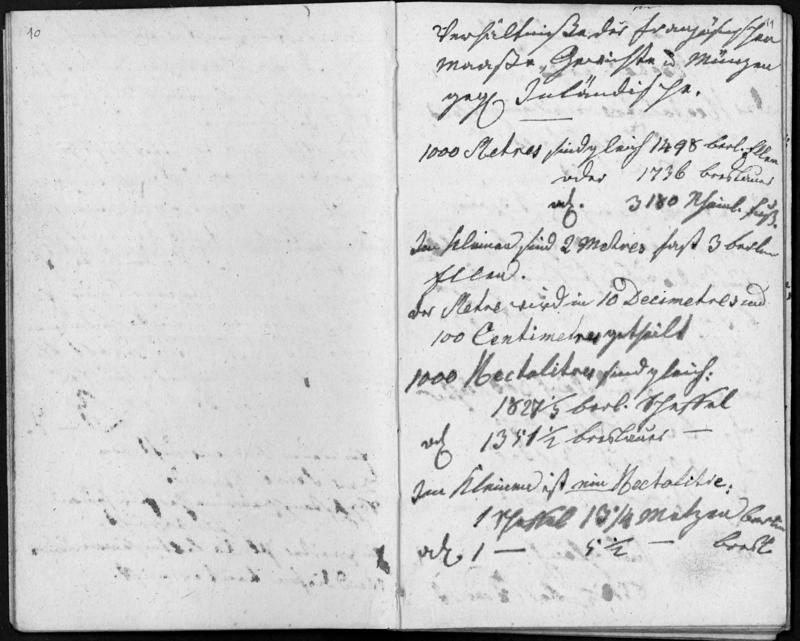 10
11
Verhältniße der Französischen
Maaße, Gewichte u Münzen
geg Inländische.
1000 Metres sind gleich 1498 berl. Ellen
oder 1736 breslauer
od. 3180 Rheinl. Fuß.
Im Kleinen sind 2 Metres fast 3 berlin
Ellen.
der Metre wird in 10 Decimetres und
100 Centimetres getheilt
1000 Hectolitres sind gleich:
1827 1/5 berl. Scheffel
od 1351 1/2 breslauer —
Im Kleinen ist ein Hectolitre:
1 Scheffel 13 1/4 Metzen berlin
od. 1 — 5 1/2 — bresl